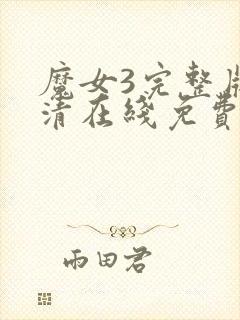 魔女3完整版
清在线免费
雨田君